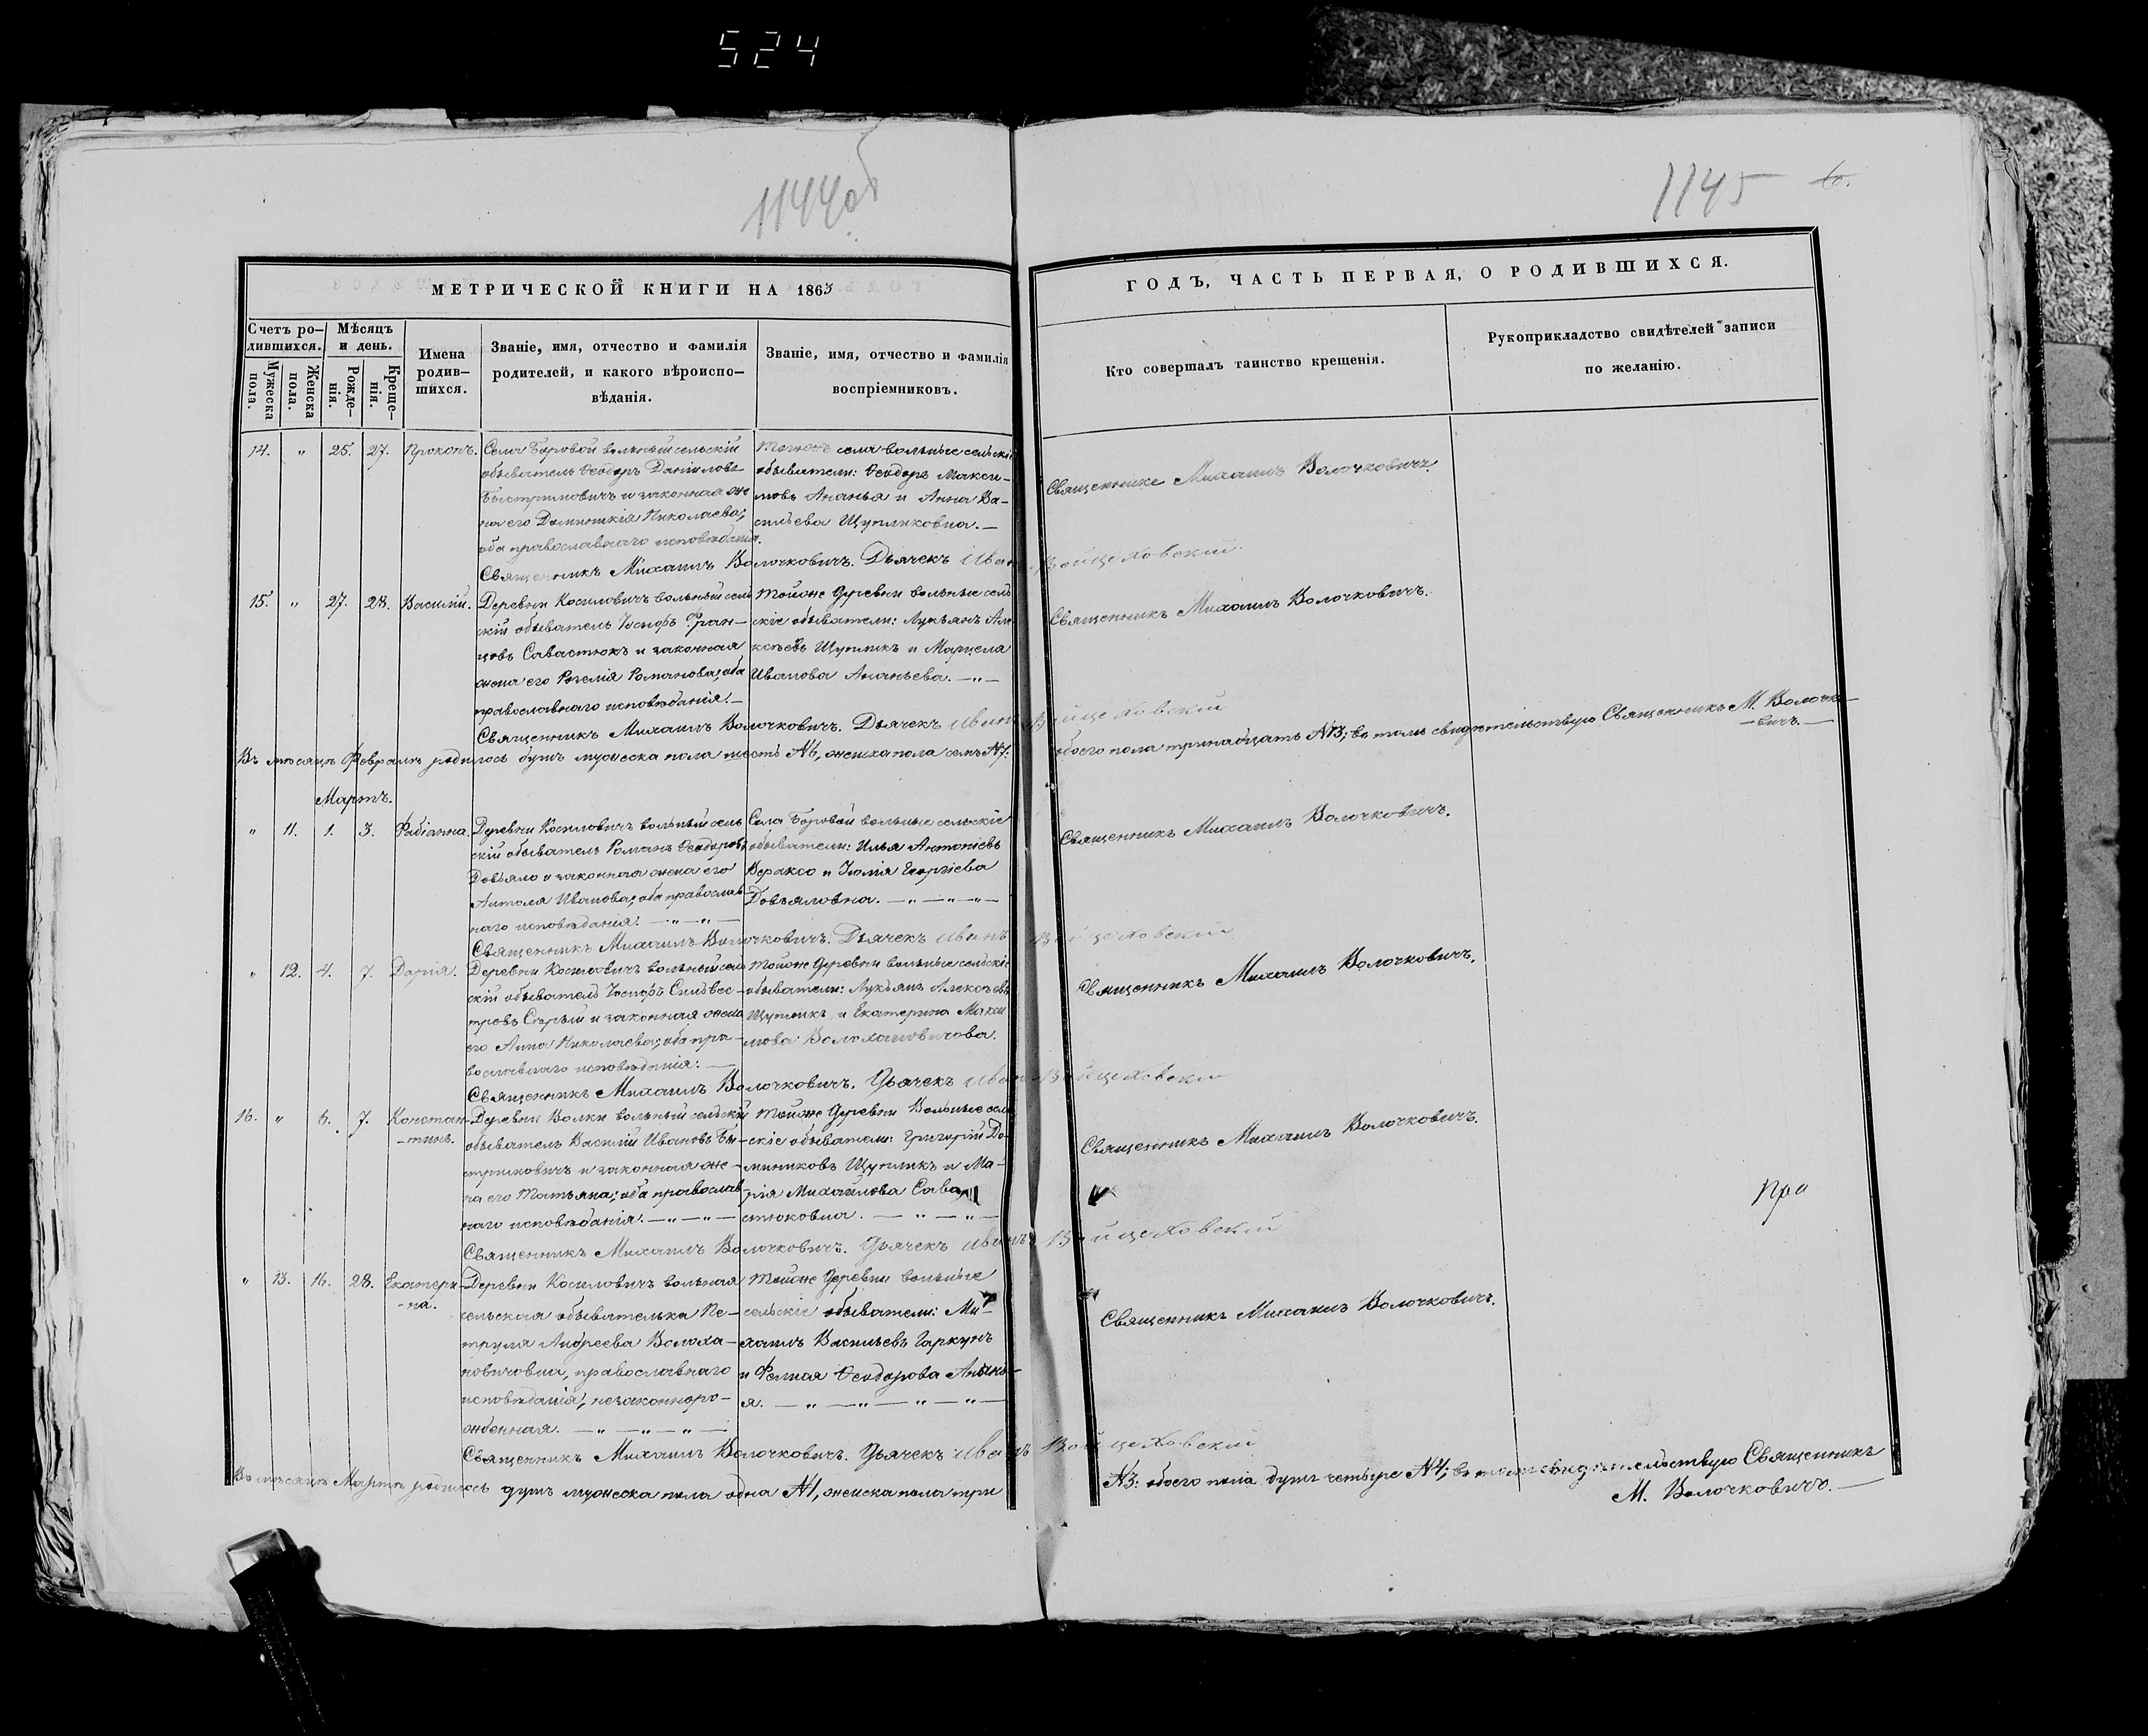 524
1144об
1145 6.
МЕТРИЧЕСКОЙ КНИГИ НА 1863
ГОДЪ, ЧАСТЬ ПЕРВАЯ, О РОДИВШИХСЯ.
Счетъ ро-
дившихся.
Мѣсяцъ
и день.
Мужеска
пола.
Женска
пола.
Рожде-
нія.
Креще-
нія.
Имена
родив-
шихся.
Званіе, имя, отчество и фамилія
родителей, и какого вѣроиспо-
вѣданія.
Званіе, имя, отчество и фамилія
воспріемниковъ.
Кто совершалъ таинство крещенія.
Рукоприкладство свидѣтелей записи
по желанію.
14. " 25. 27. Прокопъ.
Села Боровой вольный сельскій
обыватель Ѳеодоръ Даніиловъ
Быстримовичъ и законная же
на его Доминикія Николаева;
оба православнаго исповѣданія.
села вольные сельскіе
обыватели: Ѳеодоръ Макси-
мовъ Ананья и Анна Ва-
сильева Щупликовна.—
Священникъ Михаилъ Волочковичъ.
Священникъ Михаилъ Волочковичъ. Дьячекъ Иванъ Войцеховскій.
15. " 27. 28. Василій.
Деревни Косиловичъ вольный сель
скій обыватель Іосифъ Фран-
цовъ Савастюкъ и законная
жена его Розелія Романова; оба
православнаго исповѣданія.—
Тойже деревни вольные сель
скіе обыватели: Лукьянъ Але
ксѣевъ Щупликъ и Марцеля
Иванова Ананьева. — " —
Священникъ Михаилъ Волочковичъ.
Священникъ Михаилъ Волочковичъ. Дьячекъ Иванъ Войцеховскій
Въ мѣсяцѣ Февралѣ родилось душъ мужеска пола шесть №6, женска пола семь №7. обоего пола тринадцать №13; въ томъ свидѣтельствую Священникъ М. Волочко-
-вичъ.—
Мартъ.
" 11. 1. 3. Фабіанна.
Деревни Косиловичъ вольный сель
скій обыватель Романъ Ѳеодоровъ
Довъяло и законная жена его
Антоля Иванова; оба православ
наго исповѣданія. — " — " —
Села Боровой вольные сельскіе
обыватели: Илья Антоніевъ
Вераксо и Юлія Георгіева
Довъяловна. — " — " — " —
Священникъ Михаилъ Волочковичъ.
Священникъ Михаилъ Волочковичъ. Дьячекъ Иванъ Войцеховскій
" 12. 4. 7. Дарія.
Деревни Косиловичъ вольный сель
скій обыватель Іосифъ Сильвес-
тровъ Сѣрый и законная жена
его Анна Николаева; оба пра-
вославнаго исповѣданія. —
Тойже деревни вольные сельскіе
обыватели: Лукьянъ Алексѣевъ
Щупликъ и Екатерина Макси
мова Волохановичова.
Священникъ Михаилъ Волочковичъ.
Священникъ Михаилъ Волочковичъ. Дьячекъ Иванъ Войцеховскій
16. " 6. 7. Констан-
-тинъ.
Деревни Волки вольный сельскій
обыватель Василій Ивановъ Бы-
стримовичъ и законная же-
на его Татьяна; оба православ-
наго исповѣданія. — " — " —
Тойже деревни вольные сель
скіе обыватели: Григорій До-
миниковъ Щупликъ и Ма-
рія Михайлова Сава
стюковна. — " — " —
Священникъ Михаилъ Волочковичъ.
Пра
Священникъ Михаилъ Волочковичъ. Дьячекъ Иванъ Войцеховскій
" 13. 16. 28. Екатери-
-на.
Деревни Косиловичъ вольная
сельская обывателька Пе-
труля Андреева Волоха-
новичовна, православнаго
исповѣданія, незаконноро-
жденная. — " — " — " —
Тойже деревни вольные
сельскіе обыватели: Ми-
хаилъ Васильевъ Гаркунъ
и Ѳеодорова Ананье-
я. — " — " — " — " —
Священникъ Михаилъ Волочковичъ.
Священникъ Михаилъ Волочковичъ. Дьячекъ Иванъ Войцеховскій
Въ мѣсяцѣ Мартѣ родилось душъ мужеска пола одна №1, женска пола три №3: обоего пола душъ четыре №4; въ томъ свидѣтельствую Священникъ
М. Волочковичъ.—